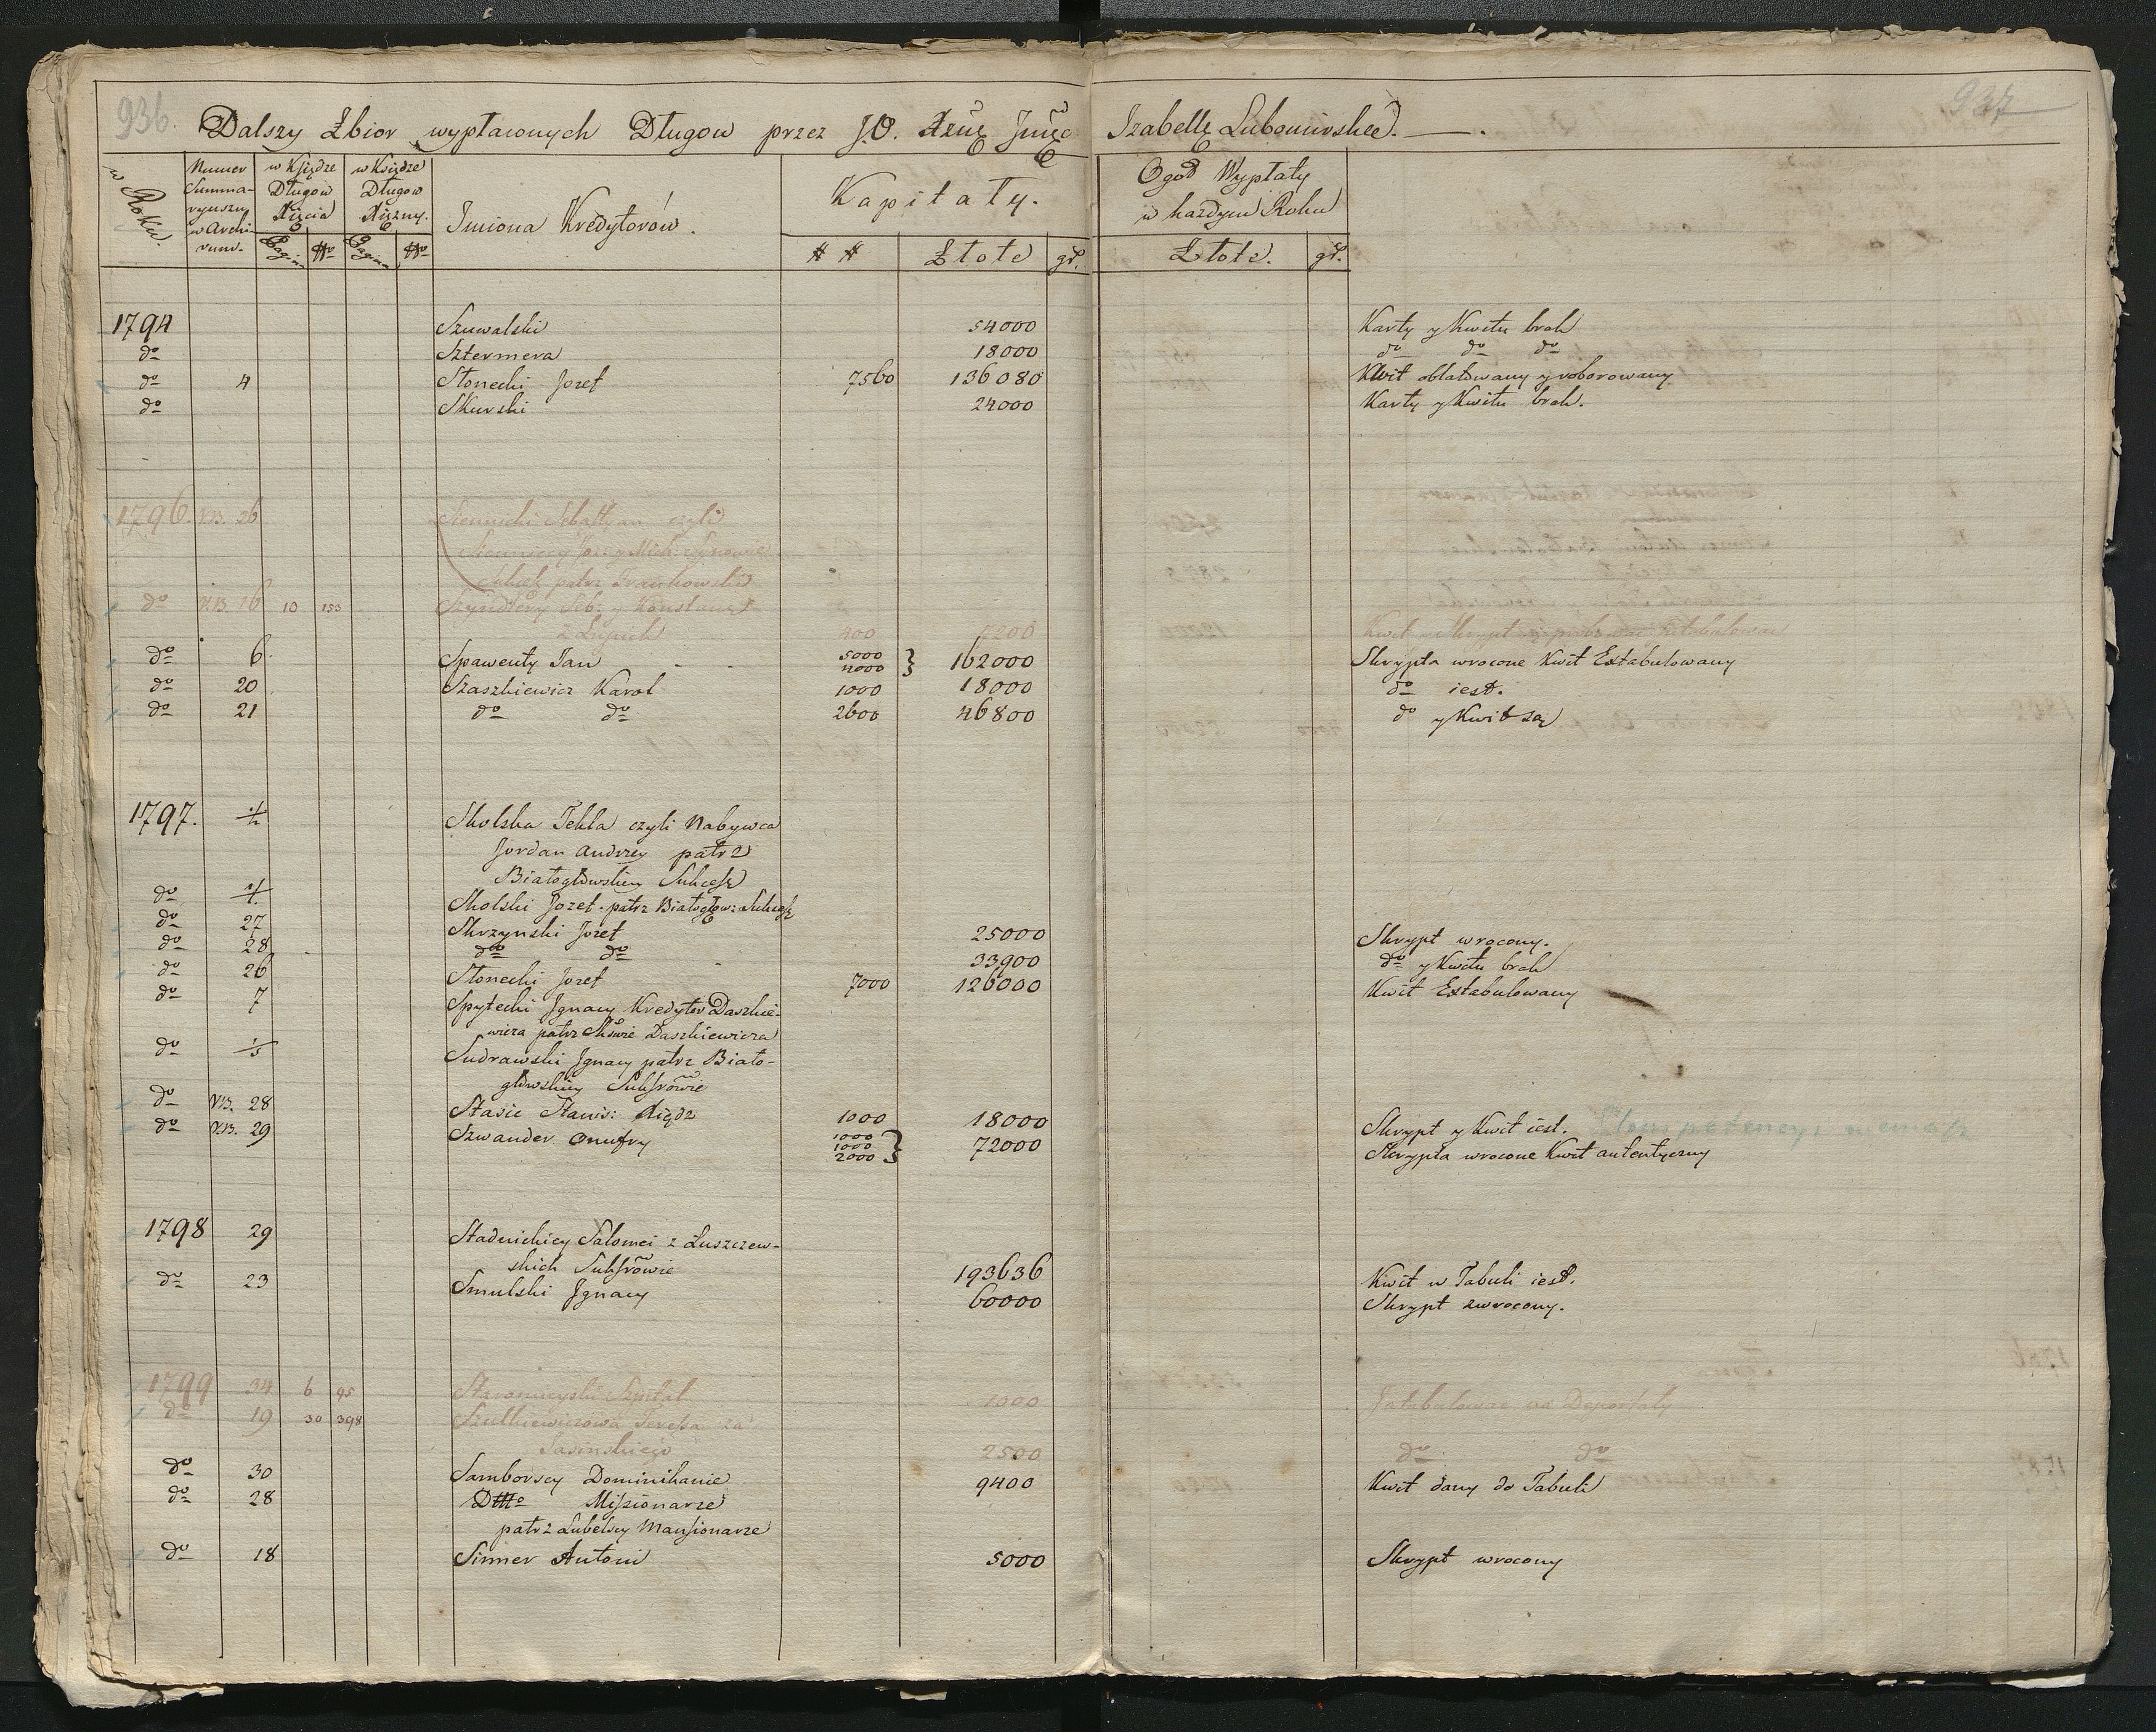 936. 937
Dalszy Zbior wypłaconych Długow przez J.O. Xznę Jmść Izabellę Lubomirską.
w Roku.
Numer Summaryuszu w Archivum.
w Księdze Długow Xięcia
w Księdze Długow Xiężny.
Pagina Nro Pagina Nro
Imiona Kredytorów.
Kapitały.
# # Złote gr.
Ogoł Wypłaty w każdym Roku
Złote. gr.
1794 Szuwalski 54000 Karty y Kwitu brak
do Sztermera 18000 do do do
do 4 Słonecki Jozef 7560 136080 Kwit oblatowany y roborowany
do Skurski 24000 Karty y Kwitu brak.
1796. NB. 26 Siennicki Sebastyan czyli
Sienniccy Joz: y Mich: Synowie
Sukces: patrz
do NB. 16 10 153 Szyndlery Seb: y Konstancya
z Lupich 400 7200 Kwit y Skrypt
do 6. Spawenty Jan 5000 4000 } 162000 Skrypta wrocone Kwit Extabulowany
do 20 Szaszkiewicz Karol 1000 18000 do iest.
do 21 do do 2600 46800 do y Kwit są
1797. Skolska Tekla czyli Nabywca
Jordan Andrzey patrz
Białogłowskiey Sukcess:
do Skolski Jozef. patrz Białogłow: Sukcess:
do 27 Skrzynski Jozef 25000 Skrypt wrocony.
do 28 do do 33900 do y Kwitu brak
do 26 Słonecki Jozef 7000 126000 Kwit Extabulowany
do 7 Spytecki Ignacy Kredytor Daszkie-
wicza patrz Daszkiewicza
do Sudrawski Ignacy patrz Biało-
głowskiey Sukssrowie
do NB. 28 Stasic Stanis: Xiądz 1000 18000 Skrypt y Kwit iest.
do NB. 29 Szwander Onufry 1000 1000 2000 } 72000 Skrypta wrocone Kwit autentyczny
1798 29 Stadnickiey Salomei z Łuszczew-
skich Sukssrowie 193636 Kwit w Tabuli iest.
do 23 Smulski Ignacy 60000 Skrypt zwrocony.
1799 34 6 95 Staromieyski Szpital 1000 Intabulowac na Deportaty
do 19 30 398 Szulkiewiczowa Teressa za
Jasinskiego 2500 do do
do 30 Samborscy Dominikanie 9400 Kwit dany do Tabuli
do 28 Dtto Missionarze
patrz Lubelscy Mansionarze
do 18 Simer Antoni 5000 Skrypt wrocony